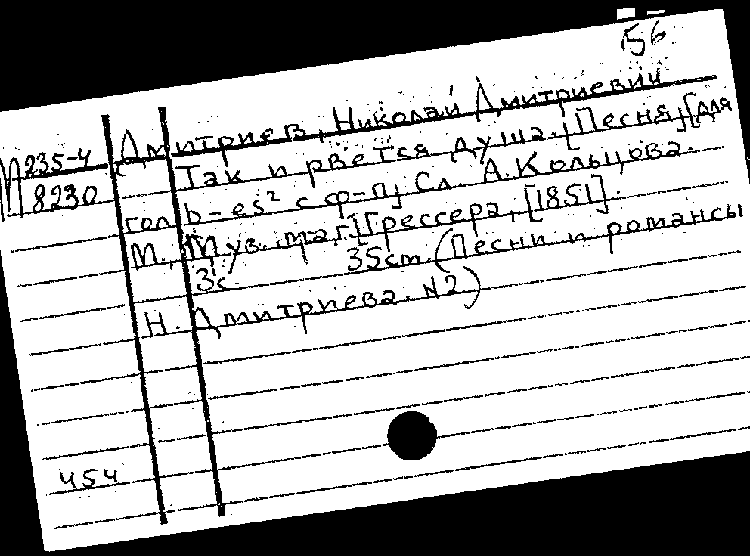 56
Дмитриев, Николай Дмитриевич
М 235-4
8230
Так и рвется душа. [Песня] [для
гол b-es² с ф-п] Сл. А. Кольцова.
М., Муз. маг. Грессера, [1851].
3с 35cm (Песни и романсы
Н. Дмитриева. N2)
454